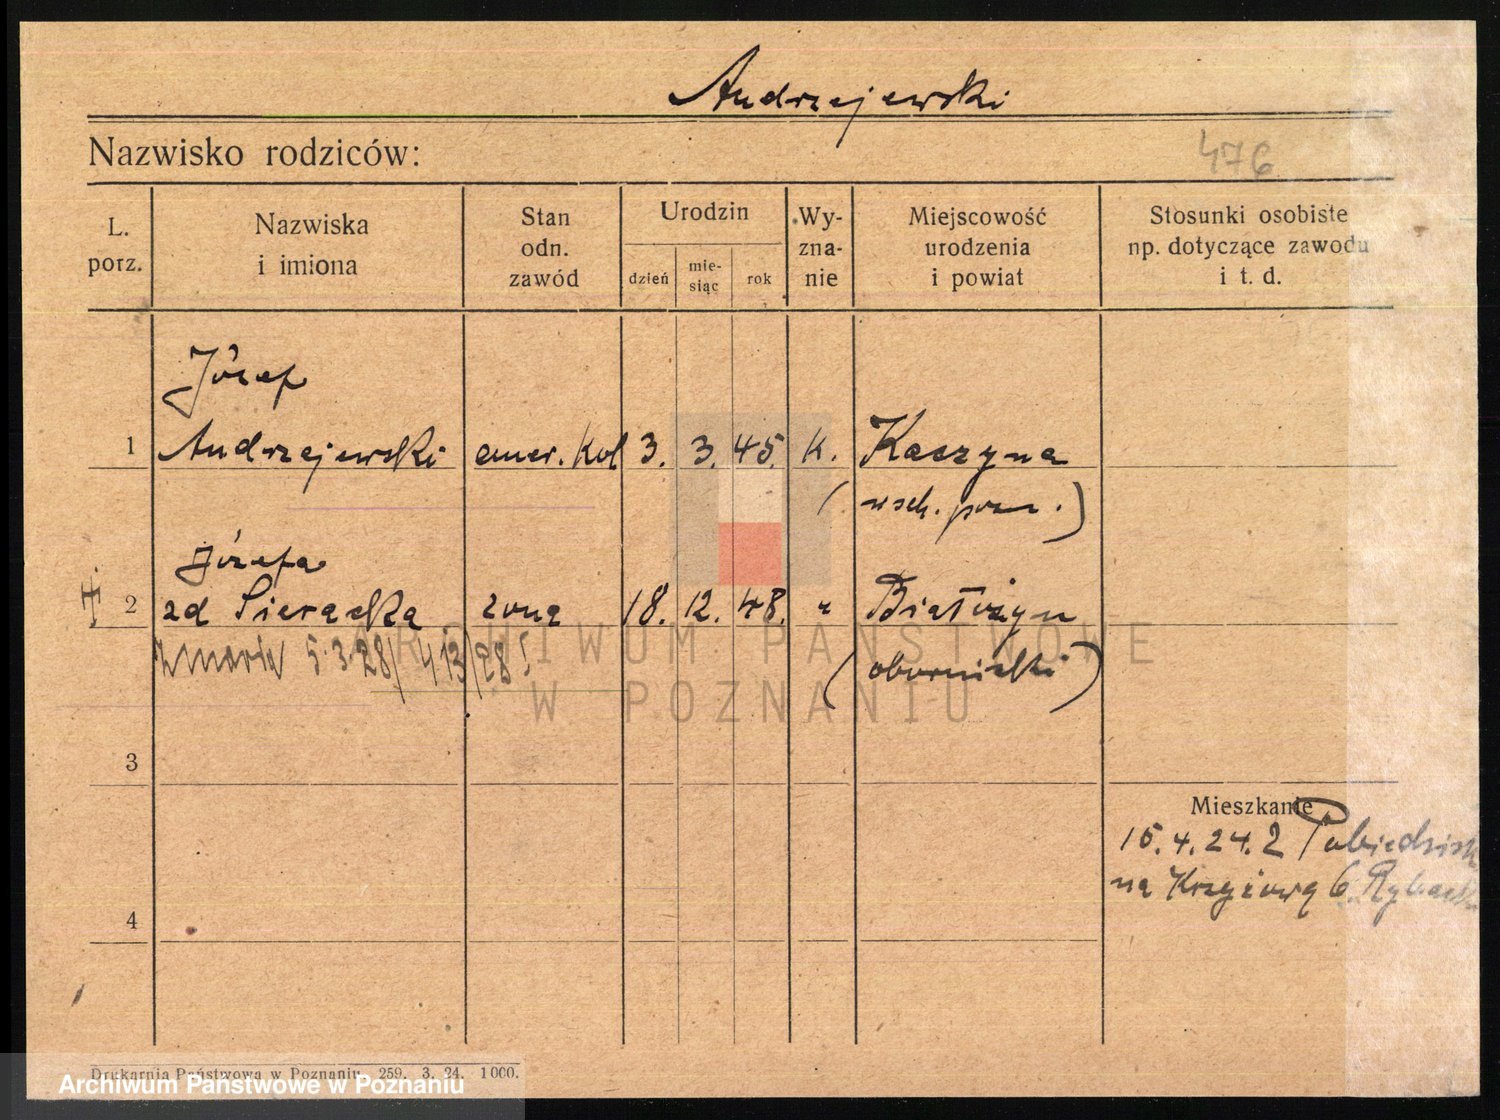 Andrzejewski
Nazwisko rodziców:
476
L. porz.
Nazwiska i imiona
Stan odn. zawód
Urodzin
dzień
mie-
siąc
rok
Wy-
zna-
nie
Miejscowość urodzenia i powiat
Stosunki osobiste np. dotyczące zawodu i t. d.
Józef
1 Andrzejewski emer. kol 3. 3. 45. k. Kaszyna
(wsch. pozn.)
Józefa
2 zd Sieracka żona 18. 12. 48. " Białężyn
Zmarła 5.3.28/ 413/28
(obornicki)
3
Mieszkanie
15.4.24. z Pobiedzisk
na Krzyżową 6.
4
Drukarnia Państwowa w Poznaniu 259. 3. 24. 1000.
ARCHIWUM PAŃSTWOWE
W POZNANIU
Archiwum Państwowe w Poznaniu